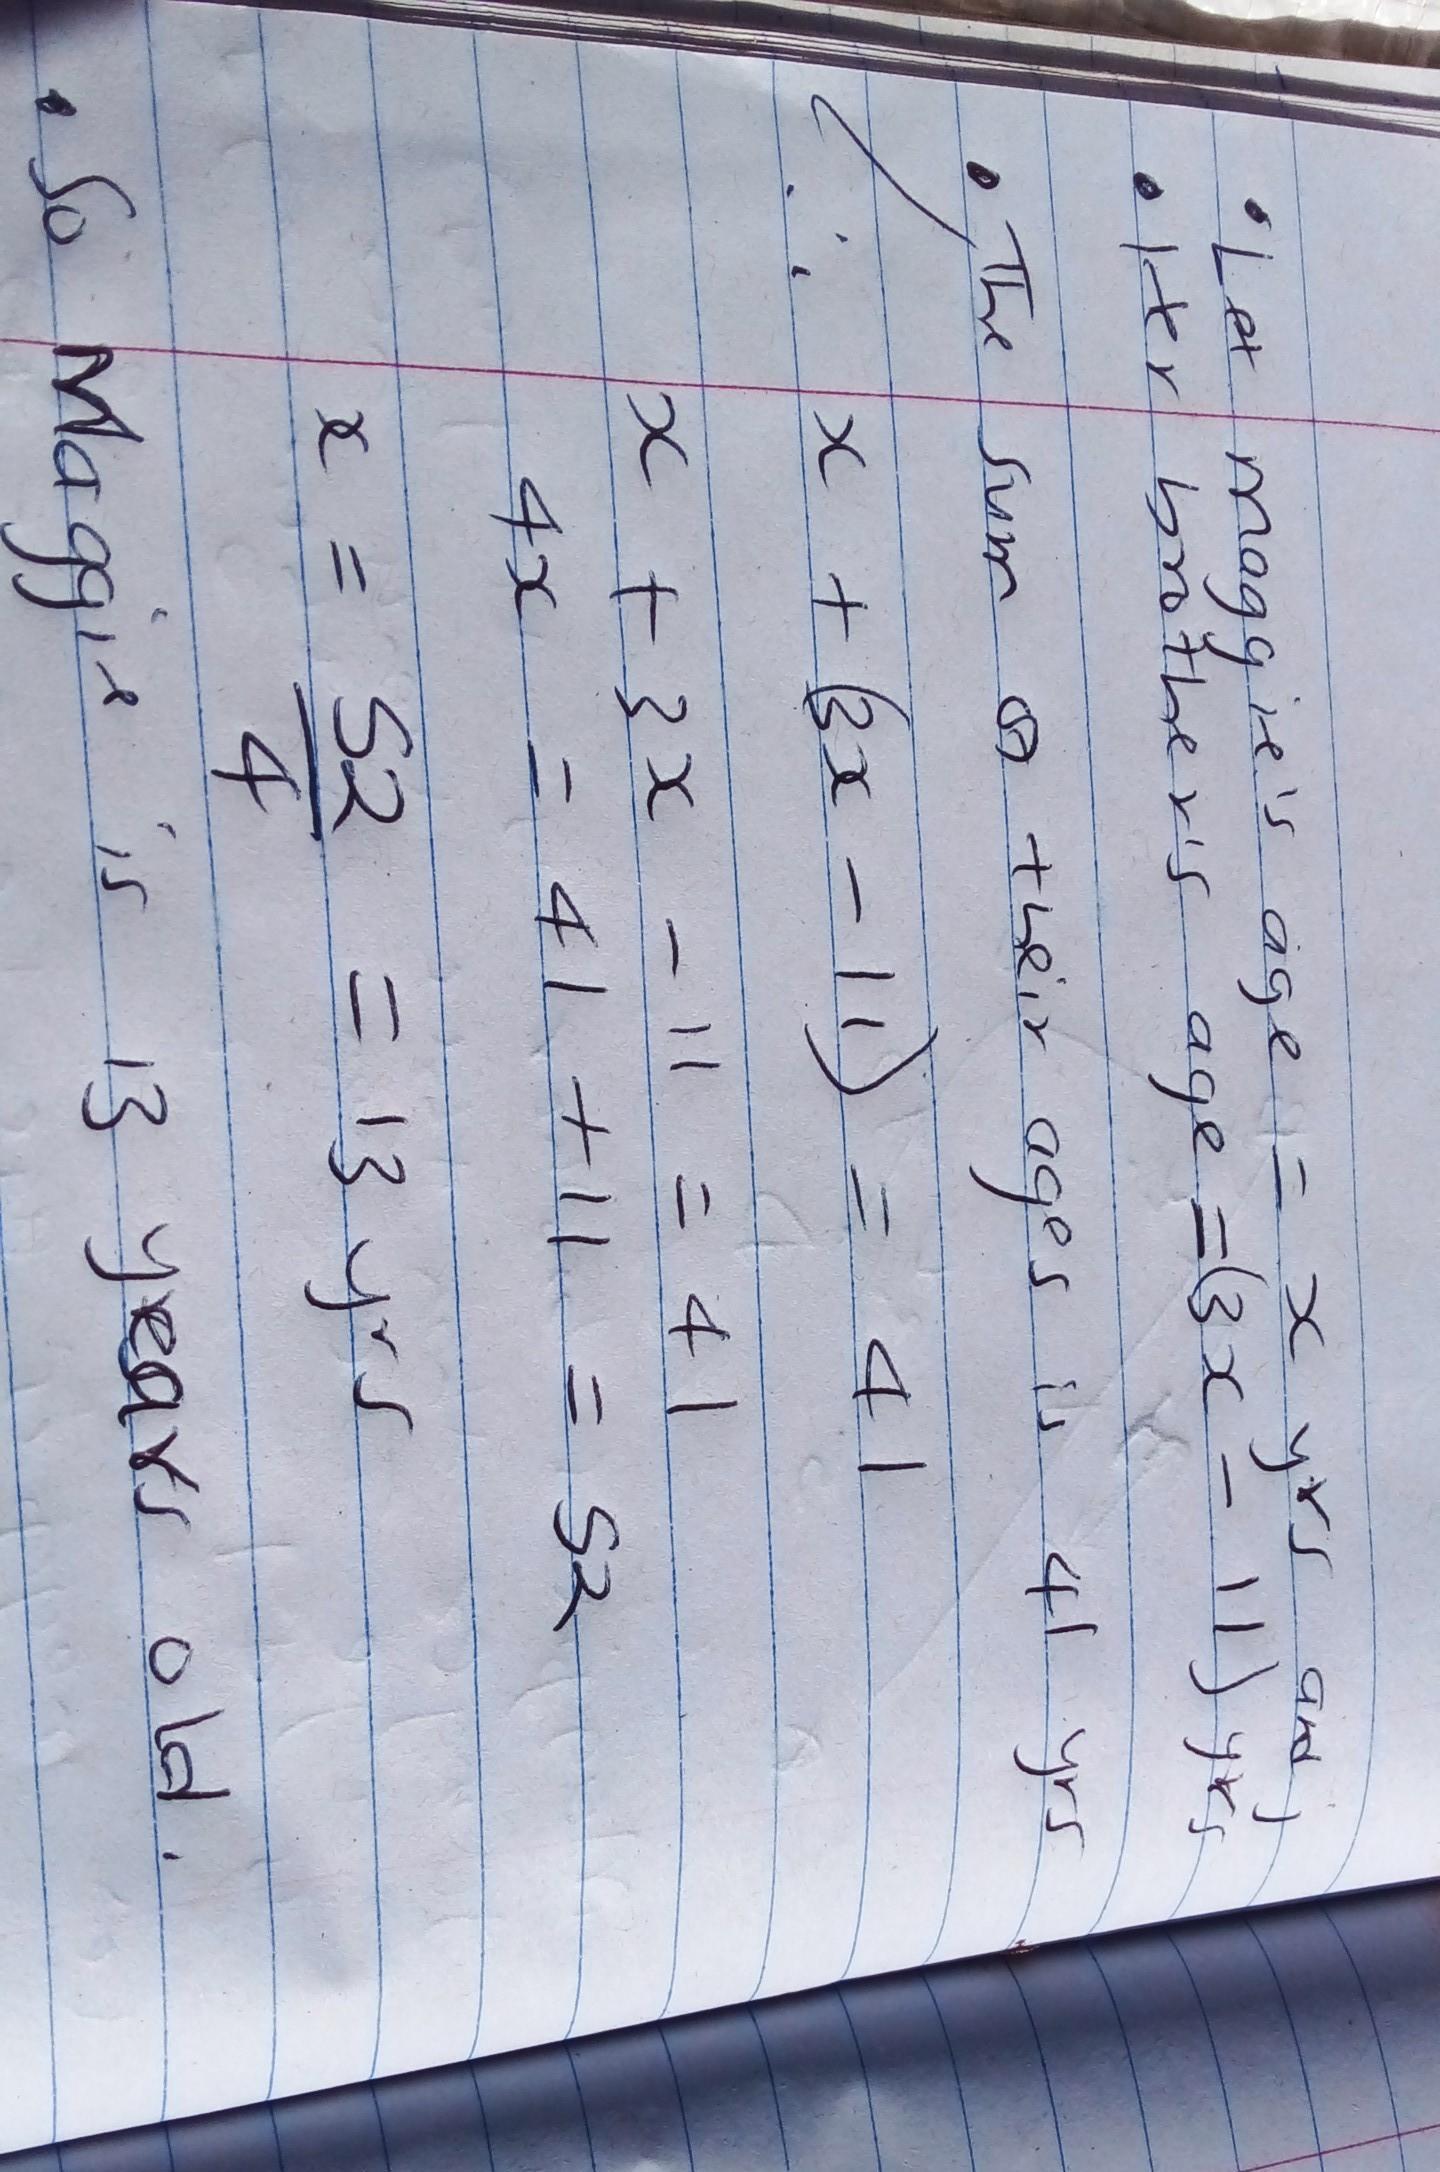 • Let maggie's age = x yrs and
• Her brother's age = (3x - 11) yrs
• The sum of their ages is 41 yrs
∴ x + (3x - 11) = 41
x + 3x - 11 = 41
4x = 41 + 11 = 52
x = 52/4 = 13 yrs
• So Maggie is 13 years old.